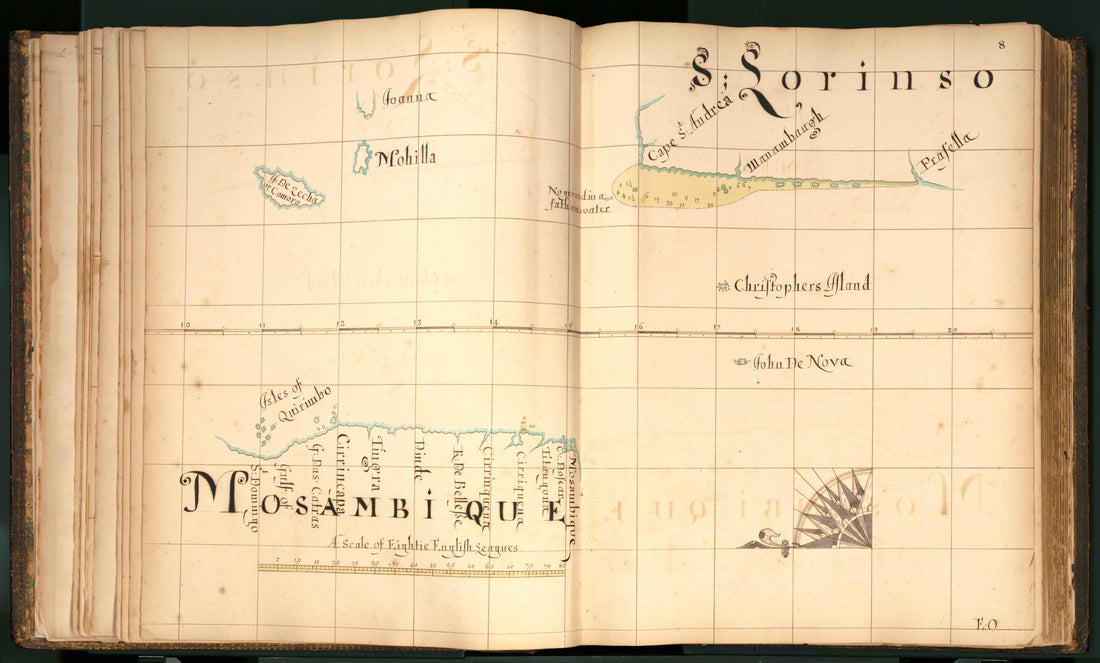 8
S: Lorinso
Joanna
Mohilla
Cape St. Andrea
Manambaugh
Prasella
No ground in a
fathom water
Christophers Island
10 11 12 13 14 15 16 17 18 19 20
John De Nova
Isles of
Quirimbo
S. Domingo
Gulf of
G. Das: Cabras
Cirrincapa
Tingra
Pinde
Cirrinquena
Cirriquena
Mosambique
MOSAMBIQUE
A Scale of Eightie English Leagues
5 10 15 20 25 30 35 40 45 50 55 60 65 70 75 80
E:O